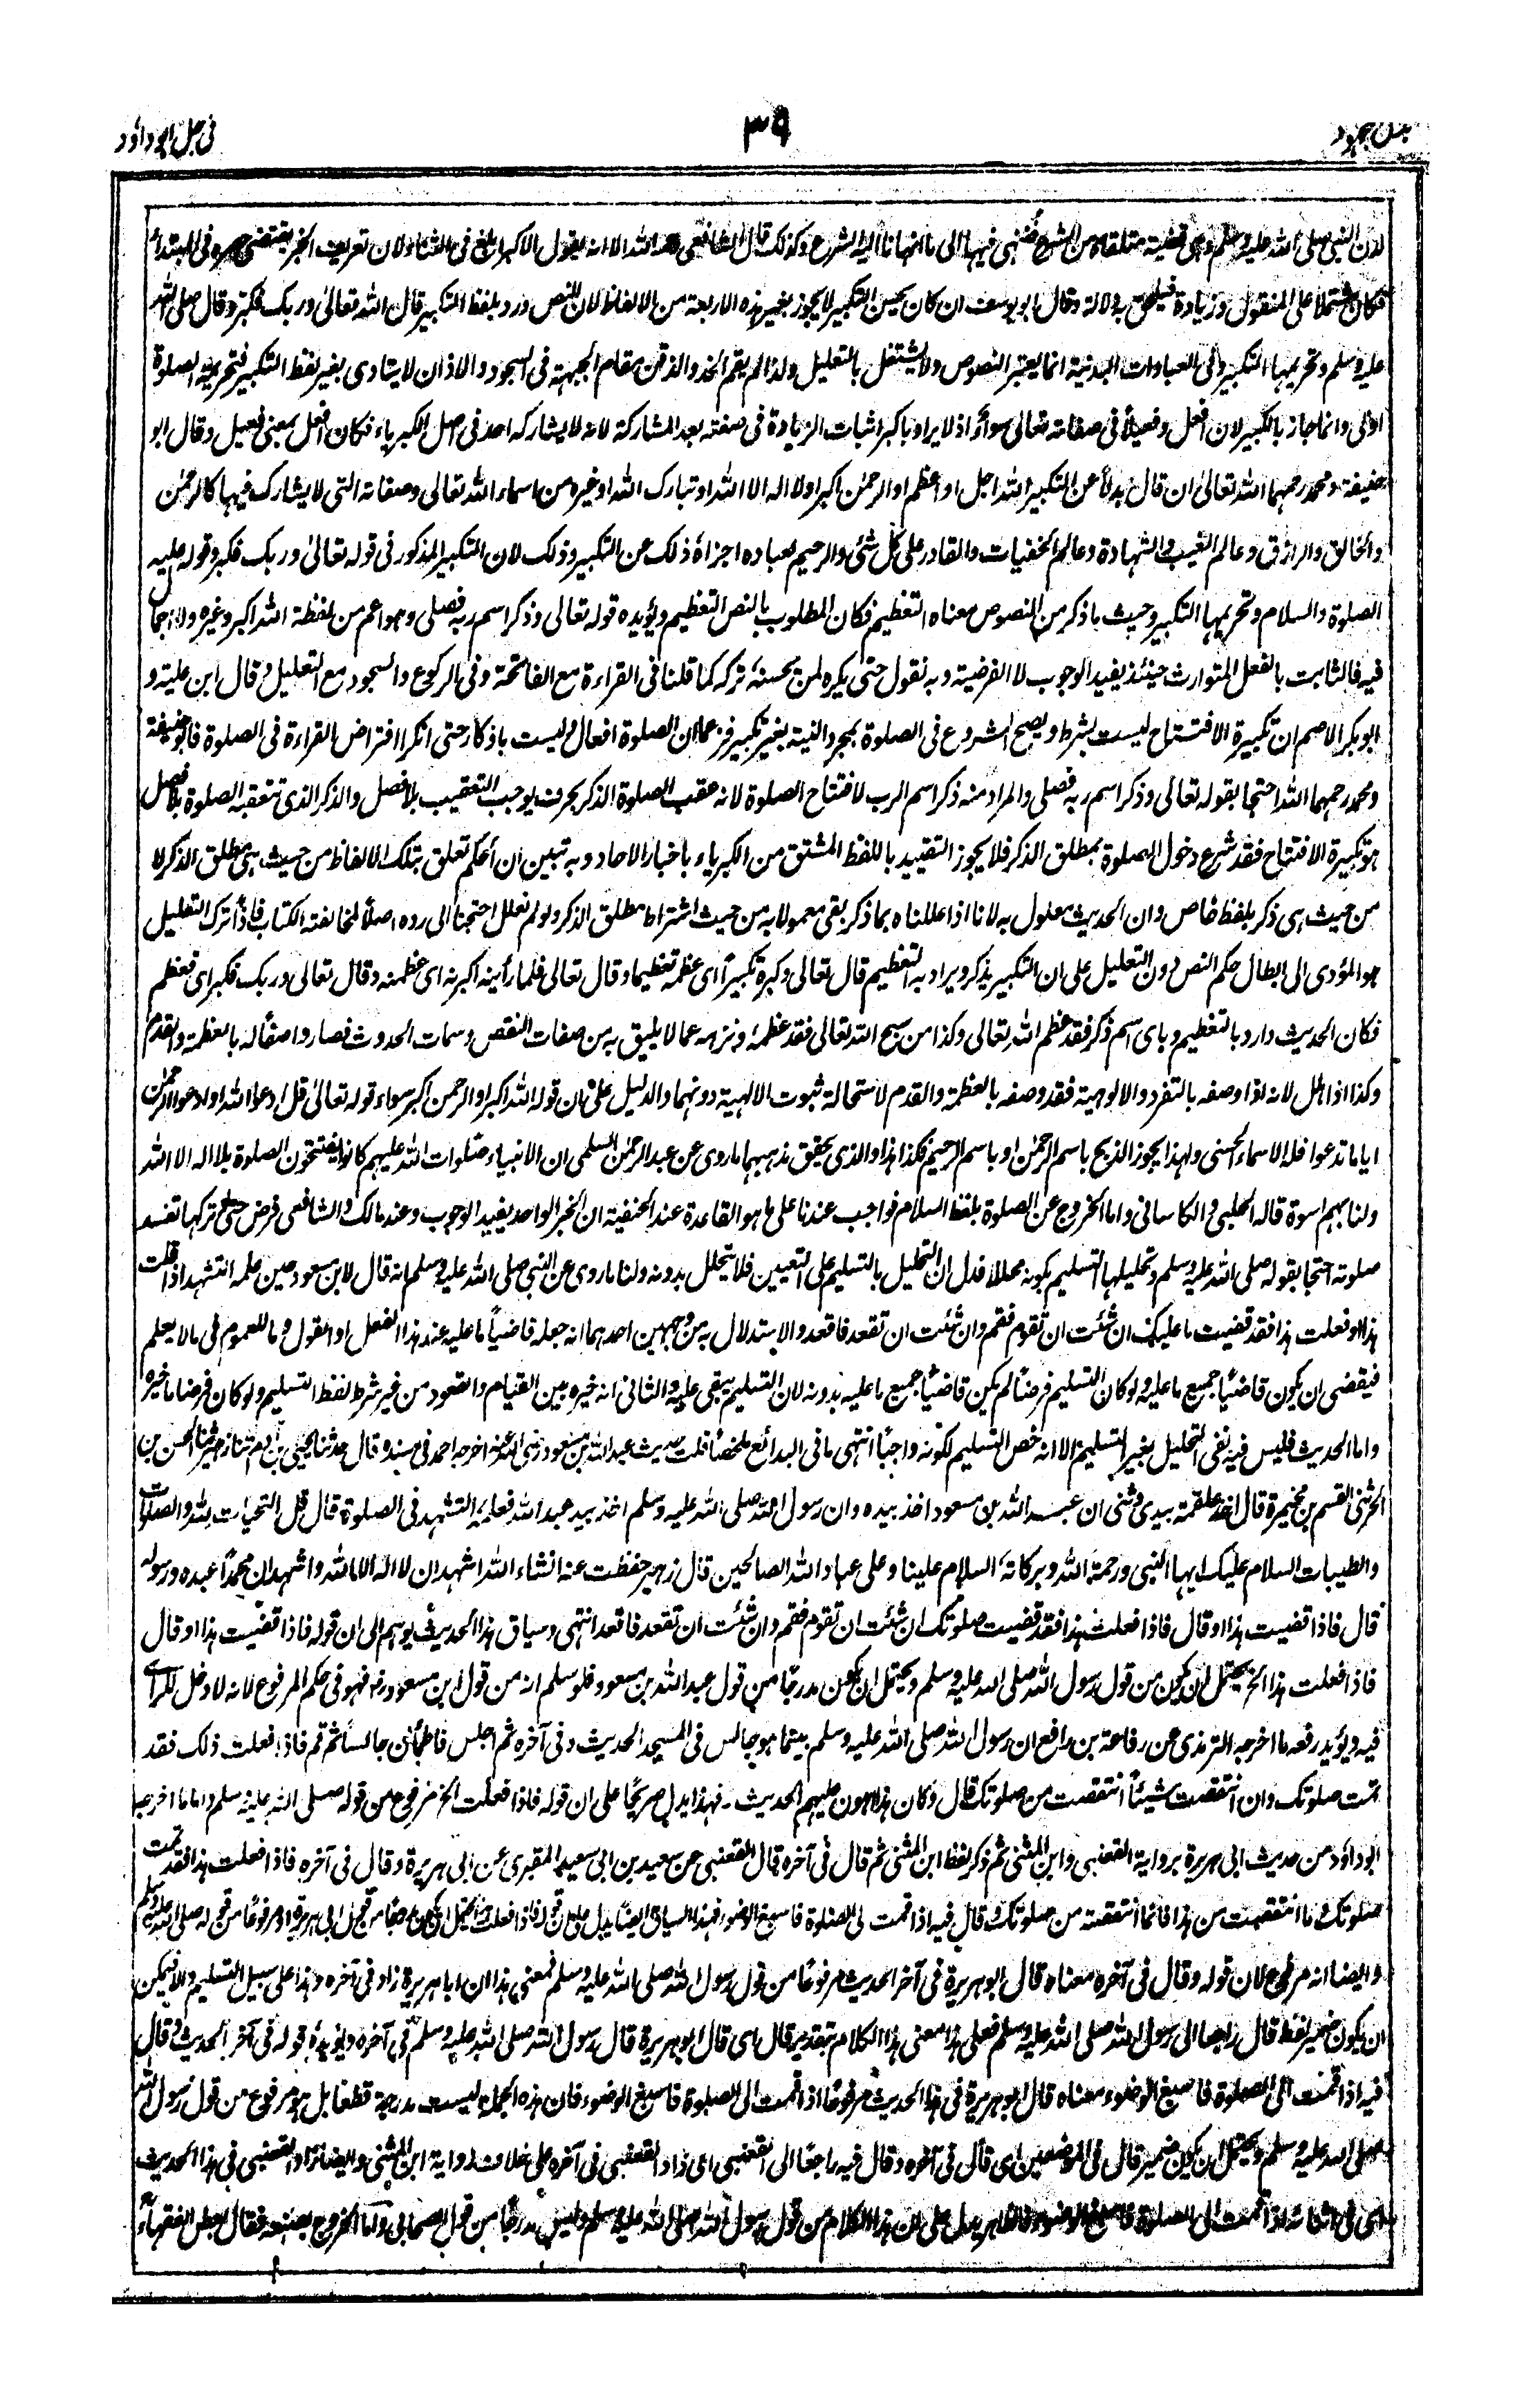 بذل مجهود
٣٩
في حل ابو داؤد
لدن النبي صلى الله عليه وسلم وهي قضية متلقاة من الشرع فننتهي فيها الى ما انهانا اليه الشرع وكذلك قال الشافعي رحمه الله الا انه يقول الاكبر ابلغ في الثناء ولان تعريف الخبر يقتضي حصره في المبتدأ
فكان مشتملا على المنقول وزيادة فيلحق به دلالة وقال ابو يوسف ان كان يحسن التكبير لا يجوز بغير هذه الاربعة من الالفاظ لان النص ورد بلفظ التكبير قال الله تعالى وربك فكبر وقال صلى الله
عليه وسلم وتحريمها التكبير وفي العبادات البدنية انما يعتبر النصوص ولا يشتغل بالتعليل ولذا لم يقم الخد والذقن مقام الجبهة في السجود والاذان لا يتادى بغير لفظ التكبير فتحريمة الصلوة
اولى وانما جاز بالكبير لان افعل وفعيلا في صفاته تعالى سواء اذ لا يراد باكبر اثبات الزيادة في صفته بعد المشاركة لانه لا يشاركه احد في اصل الكبرياء فكان افعل بمعنى فعيل وقال ابو
حنيفة ومحمد رحمهما الله تعالى ان قال بدلا عن التكبير الله اجل او اعظم او الرحمن اكبر او لا اله الا الله او تبارك الله او غيره من اسماء الله تعالى وصفاته التي لا يشارك فيها كالرحمن
والخالق والرازق وعالم الغيب والشهادة وعالم الخفيات والقادر على كل شئ والرحيم لعباده اجزأه ذلك عن التكبير وذلك لان التكبير المذكور في قوله تعالى وربك فكبر وقوله عليه
الصلوة والسلام وتحريمها التكبير وحيث ما ذكر من النصوص معناه التعظيم فكان المطلوب بالنص التعظيم ويؤيده قوله تعالى وذكر اسم ربه فصلى وهو اعم من لفظة الله اكبر وغيره ولا اجمال
فيه فالثابت بالفعل المتوارث حينئذ يفيد الوجوب لا الفرضية وبه نقول حتى يكره لمن يحسنه تركه كما قلنا في القراءة مع الفاتحة وفي الركوع والسجود مع التعليل وقال ابن علية و
ابو بكر الاصم ان تكبيرة الافتتاح ليست بشرط ويصح الشروع في الصلوة بمجرد النية بغير تكبير فزعما ان الصلوة افعال وليست باذكار حتى انكرا افتراض القراءة في الصلوة فابو حنيفة
ومحمد رحمهما الله احتجا بقوله تعالى وذكر اسم ربه فصلى والمراد منه ذكر اسم الرب لافتتاح الصلوة لانه عقب الصلوة الذكر بحرف يوجب التعقيب بلا فصل والذكر الذي تتعقبه الصلوة بلا فصل
هو تكبيرة الافتتاح فقد شرع دخول الصلوة بمطلق الذكر فلا يجوز التقييد باللفظ المشتق من الكبرياء باخبار الاحاد وبه تبين ان الحكم تعلق بتلك الالفاظ من حيث هي مطلق الذكر لا
من حيث هي ذكر بلفظ خاص وان الحديث معلول به لانا اذا عللناه بما ذكر بقي معمولا به من حيث اشتراط مطلق الذكر ولو لم نعلل احتجنا الى رده اصلا لمخالفته الكتاب فاذا ترك التعليل
هو المؤدي الى ابطال حكم النص دون التعليل على ان التكبير يذكر ويراد به التعظيم قال تعالى وكبره تكبيرا اى عظمه تعظيما وقال تعالى فلما رأينه اكبرنه اى عظمنه وقال تعالى وربك فكبر اى فعظم
فكان الحديث وارد بالتعظيم وباى اسم ذكر فقد عظم الله تعالى وكذا من سبح الله تعالى فقد عظمه ونزهه عما لا يليق به من صفات النقص وسمات الحدوث فصار واصفا له بالعظمة والقدم
وكذا اذا هلل لانه اذا وصفه بالتفرد والالوهية فقد وصفه بالعظمة والقدم لاستحالة ثبوت الالهية دونهما والدليل على ان قوله الله اكبر والرحمن اكبر سواء قوله تعالى قل ادعوا الله او ادعوا الرحمن
ايا ما تدعوا فله الاسماء الحسنى ولهذا يجوز الذبح باسم الرحمن او باسم الرحيم فكذا هذا والذى يحقق مذهبهما ما روى عن عبد الرحمن السلمي ان الانبياء صلوات الله عليهم كانوا يفتتحون الصلوة بلا اله الا الله
ولنا بهم اسوة قاله الحلبي والكاساني واما الخروج عن الصلوة بلفظ السلام فواجب عندنا على ما هو القاعدة عند الحنفية ان الخبر الواحد يفيد الوجوب وعند مالك والشافعي فرض حتى تركها تفسد
صلوته احتجا بقوله صلى الله عليه وسلم وتحليلها التسليم بكونه محللا فدل ان التحليل بالتسليم على التعيين فلا يتحلل بدونه ولنا ما روى عن النبي صلى الله عليه وسلم انه قال لابن مسعود حين علمه التشهد اذا قلت
هذا او فعلت هذا فقد قضيت ما عليك ان شئت ان تقوم فقم وان شئت ان تقعد فاقعد والاستدلال به من وجهين احدهما انه جعله قاضيا ما عليه عند هذا الفعل او القول وما للعموم في ما لا يعلم
فيقضي ان يكون قاضيا جميع ما عليه ولو كان التسليم فرضا لم يكن قاضيا جميع ما عليه بدونه لان التسليم يبقى عليه والثاني انه خيره بين القيام والقعود من غير شرط لفظ التسليم ولو كان فرضا ما خيره
واما الحديث فليس فيه نفي التحليل بغير التسليم الا انه خص التسليم لكونه واجبا انتهى ما في البدائع ملخصا قلت حديث عبد الله بن مسعود رضي الله عنه اخرجه احمد في مسنده قال حدثنا يحيى بن آدم ثنا زهير ثنا الحسن بن
الحر ثنى القسم بن مخيمرة قال اخذ علقمة بيدي وثنى ان عبد الله بن مسعود اخذ بيده وان رسول الله صلى الله عليه وسلم اخذ بيد عبد الله فعلمه التشهد في الصلوة قال قل التحيات لله والصلوات
والطيبات السلام عليك ايها النبي ورحمة الله وبركاته السلام علينا وعلى عباد الله الصالحين قال زهير حفظت عنه انشاء الله اشهد ان لا اله الا الله واشهد ان محمدا عبده ورسوله
قال فاذا قضيت هذا او قال فاذا فعلت هذا فقد قضيت صلوتك ان شئت ان تقوم فقم وان شئت ان تقعد فاقعد انتهى وسياق هذا الحديث يوهم الى ان قوله فاذا قضيت هذا او قال
فاذا فعلت هذا الخ يحتمل ان يكون من قول رسول الله صلى الله عليه وسلم ويحتمل ان يكون مدرجا من قول عبد الله بن مسعود فلو سلم انه من قول ابن مسعود رضـ فهو في حكم المرفوع لانه لا دخل للرأى
فيه ويؤيد رفعه ما اخرجه الترمذي عن رفاعة بن رافع ان رسول الله صلى الله عليه وسلم بينما هو جالس في المسجد الحديث وفي آخره ثم اجلس فاطمئن جالسا ثم قم فاذا فعلت ذلك فقد
تمت صلوتك وان انتقصت شيئا انتقصت من صلوتك قال وكان هذا اهون عليهم الحديث - فهذا يدل صريحا على ان قوله فاذا فعلت الخ مرفوع من قوله صلى الله عليه وسلم واما ما اخرجه
ابو داؤد من حديث ابي هريرة برواية القعنبي وابن المثنى ثم ذكر لفظ ابن المثنى ثم قال في آخره قال القعنبي عن سعيد بن ابي سعيد المقبري عن ابي هريرة وقال في آخره فاذا فعلت هذا فقد تمت
صلوتك وما انتقصت من هذا فانما انتقصته من صلوتك وقال فيه اذا قمت الى الصلوة فاسبغ الوضوء فهذا السياق ايضا يدل على ان قوله فاذا فعلت يحتمل ان يكون مدرجا من قول ابي هريرة او مرفوعا من قوله صلى الله عليه وسلم
وايضا انه مرفوع لان قوله وقال في آخره معناه قال ابو هريرة في آخر الحديث مرفوعا من قول رسول الله صلى الله عليه وسلم فمعنى هذا ان ابا هريرة زاد في آخره وهذا على سبيل التسليم والا فيمكن
ان يكون ضمير لفظ قال راجعا الى رسول الله صلى الله عليه وسلم فعلى هذا معنى هذا الكلام بتقدير قال اى قال ابو هريرة قال رسول الله صلى الله عليه وسلم في آخره ويؤيده قوله في آخر الحديث وقال
فيه اذا قمت الى الصلوة فاسبغ الوضوء معناه قال ابو هريرة في هذا الحديث مرفوعا اذا قمت الى الصلوة فاسبغ الوضوء فان هذه الجملة ليست مدرجة قطعا بل هو مرفوع من قول رسول الله
صلى الله عليه وسلم ويحتمل ان يكون ضمير قال في الموضعين اى قال في آخره وقال فيه راجعا الى القعنبي اى زاد القعنبي في آخره على خلاف رواية ابن المثنى وايضا زاد القعنبي في هذا الحديث
اى في اثنائه اذا قمت الى الصلوة فاسبغ الوضوء فالظاهر يدل على ان هذا الكلام من قول رسول الله صلى الله عليه وسلم وليس مدرجا من قول الصحابي واما الخروج بصنعه فقال بعض الفقهاء